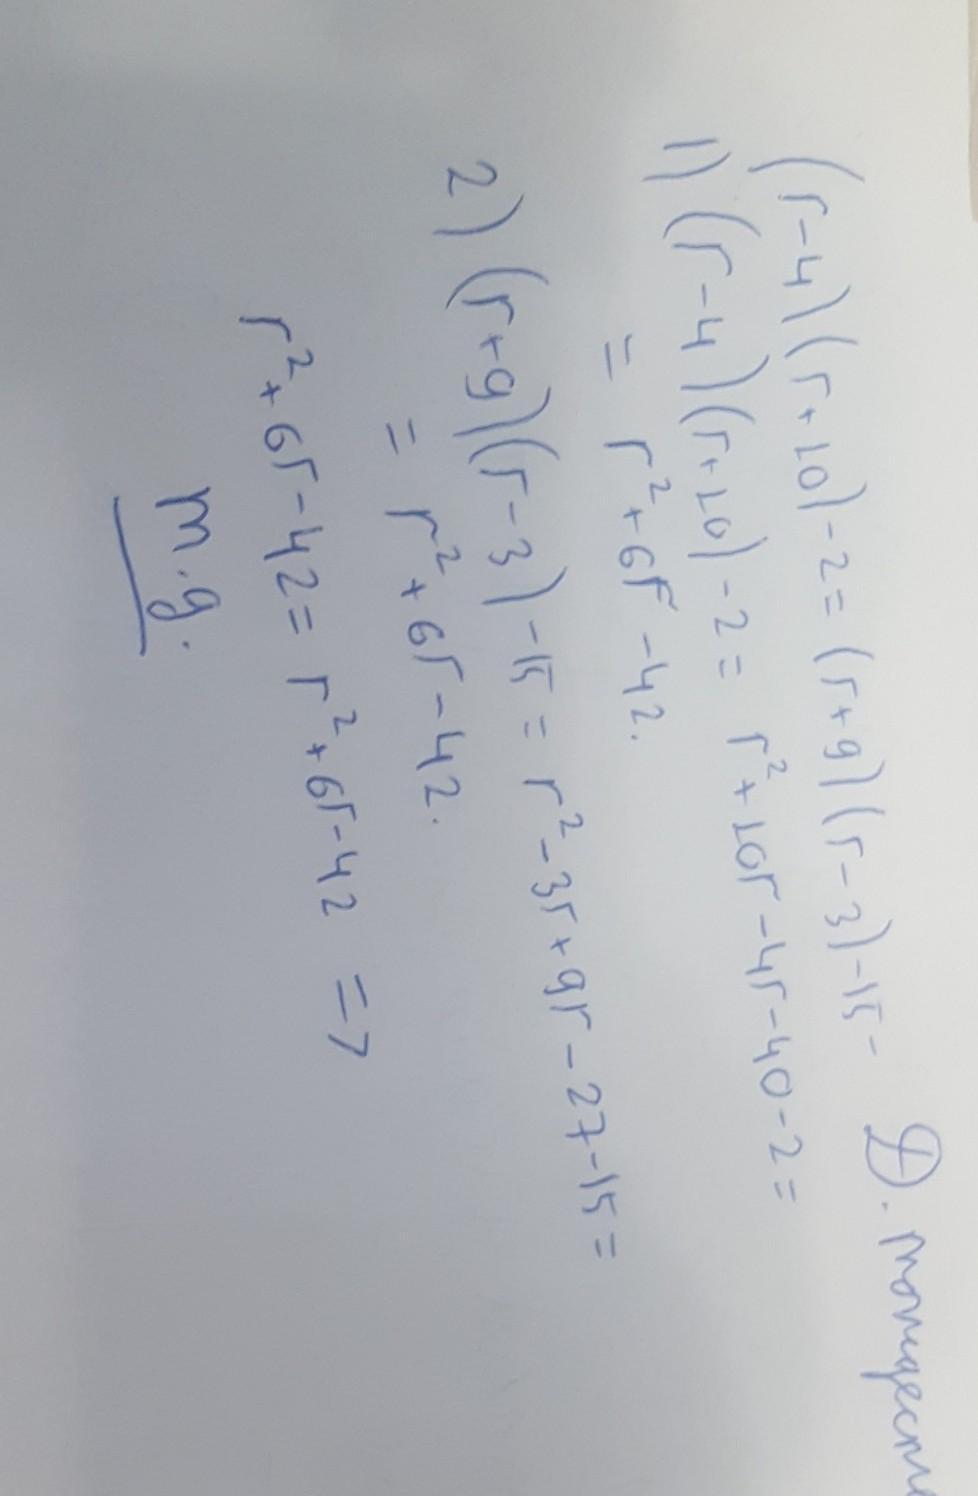 (r-4)(r+10)-2=(r+9)(r-3)-15- D. тождеств
1) (r-4)(r+10)-2= r²+10r-4r-40-2=
= r²+6r-42.
2) (r+9)(r-3)-15= r²-3r+9r-27-15=
= r²+6r-42.
r²+6r-42= r²+6r-42 =>
m.g.